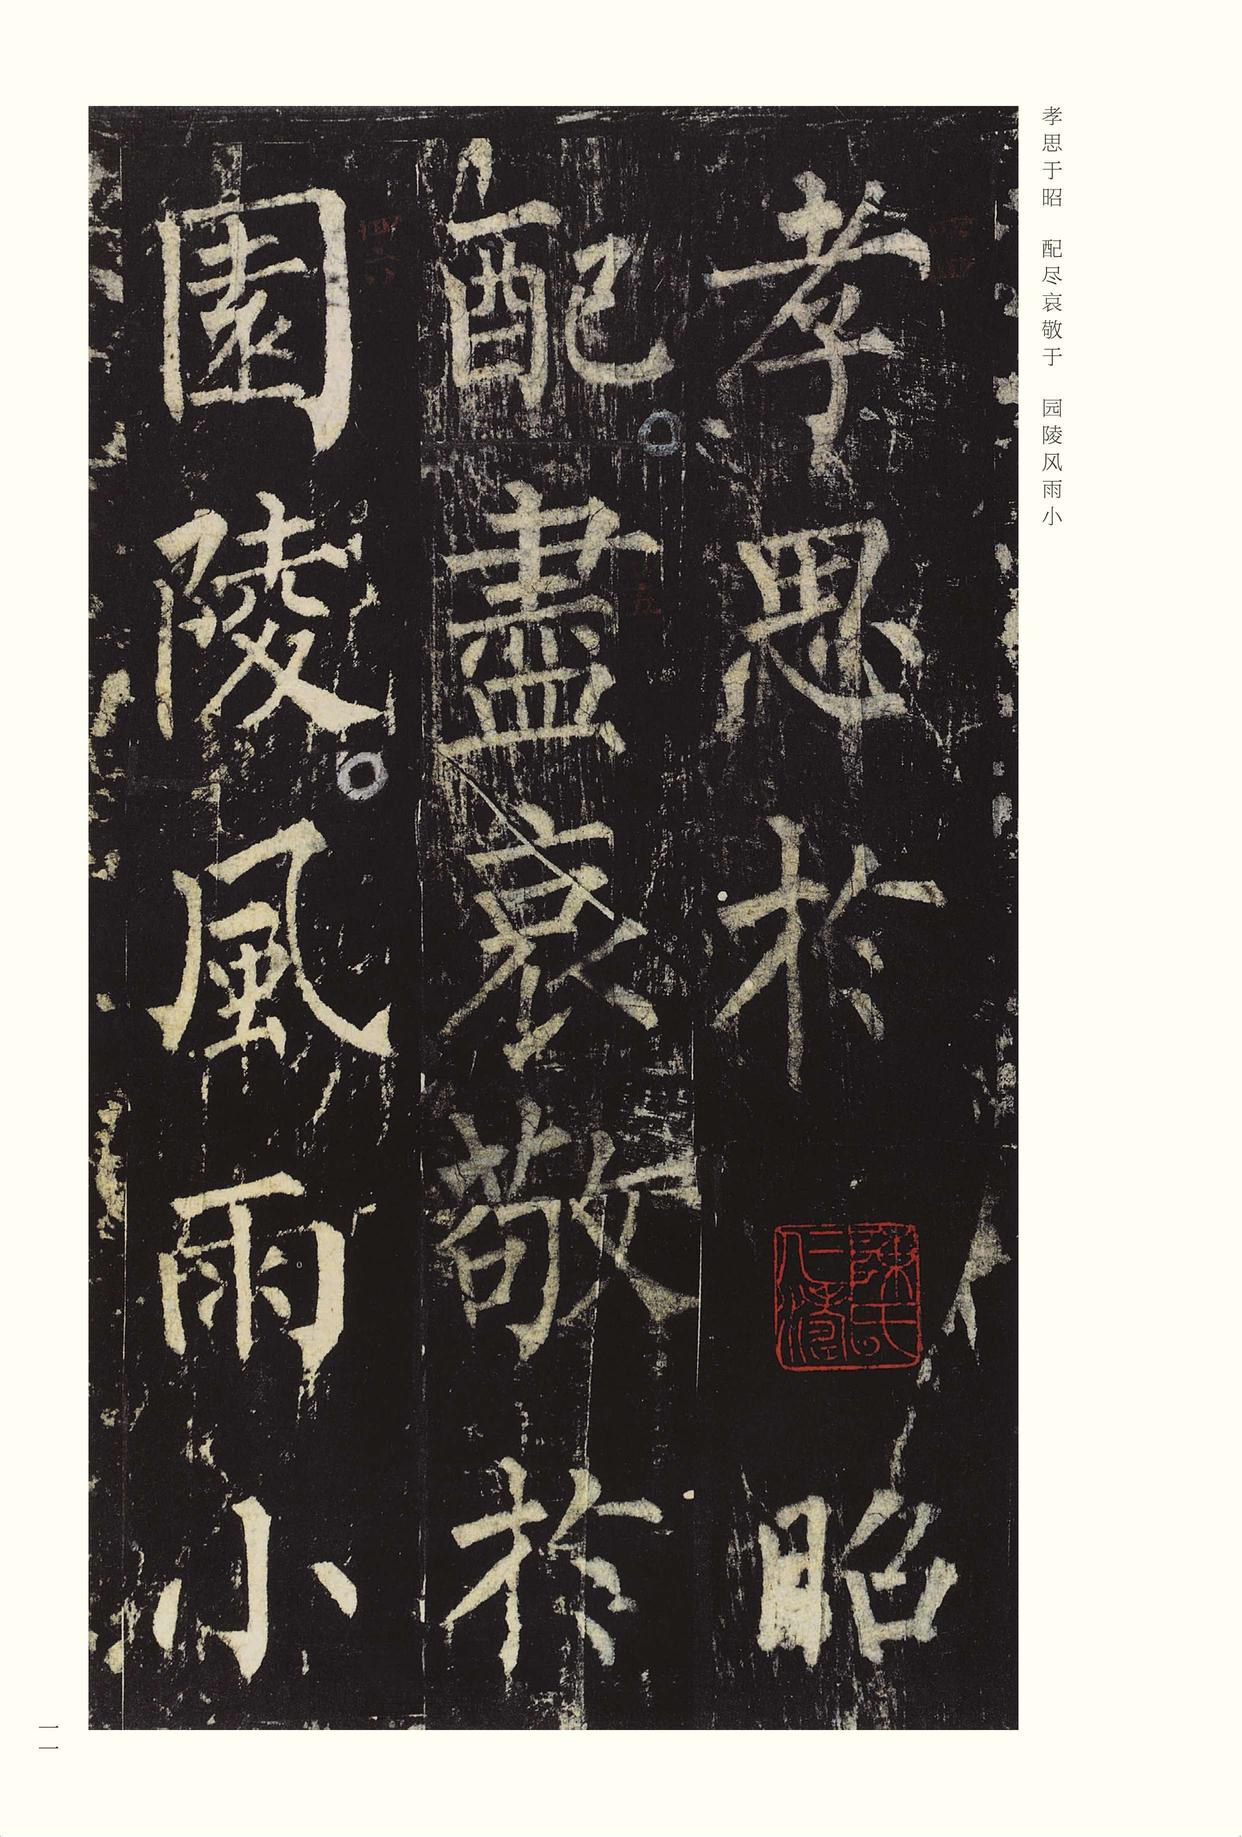 孝思于昭　配尽哀敬于　园陵风雨小
孝思於昭
配盡哀敬於
園陵風雨小
一一